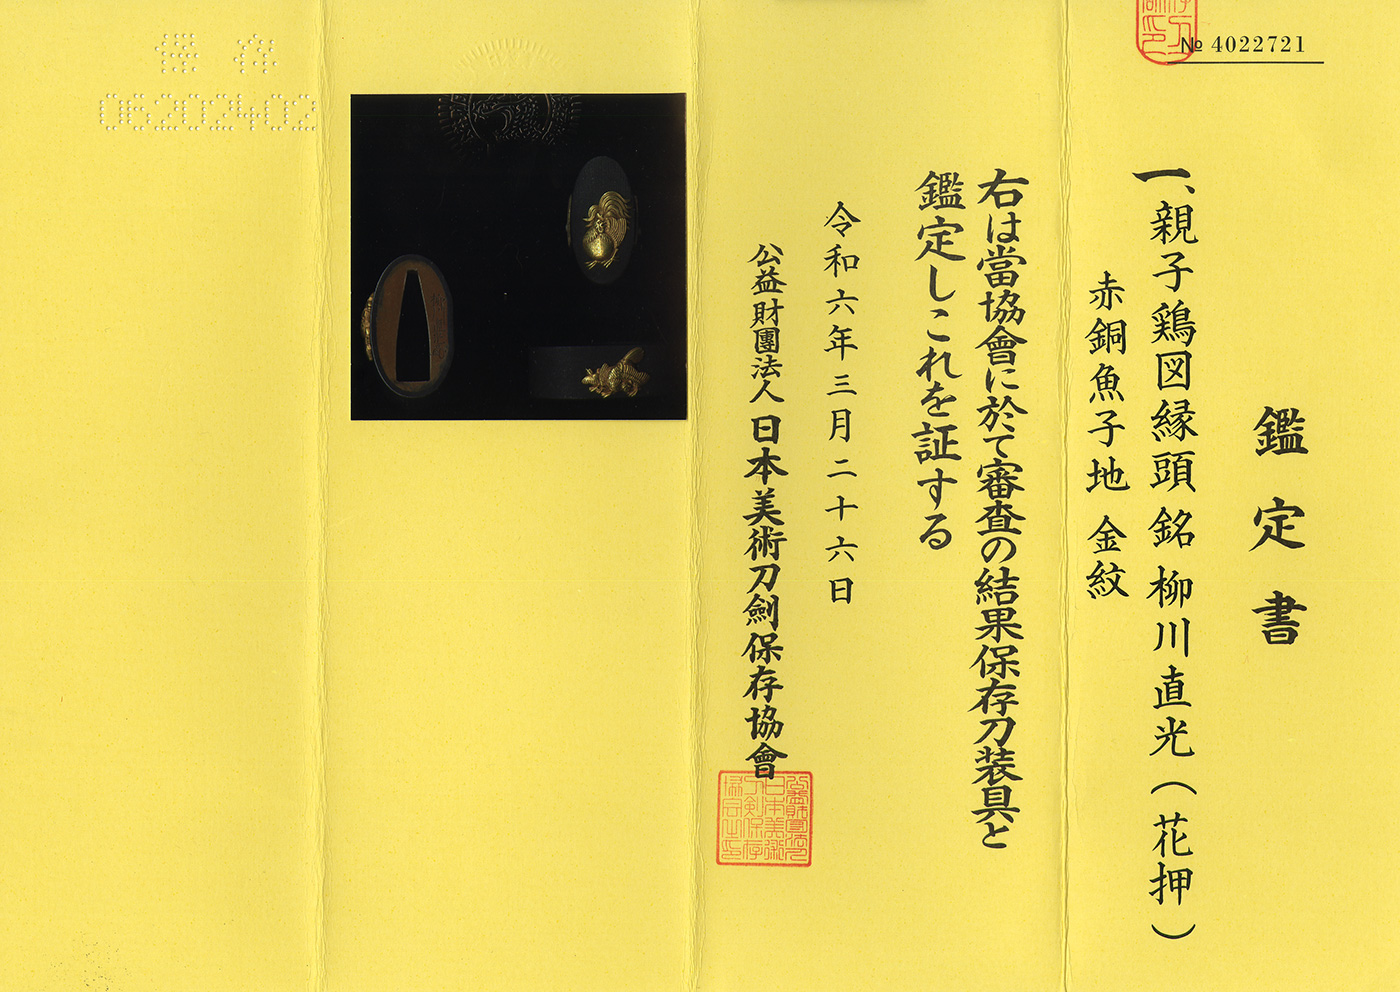 № 4022721
鑑定書
一、親子鶏図縁頭 銘 柳川直光（花押）
赤銅魚子地 金紋
右は當協會に於て審査の結果保存刀装具と
鑑定しこれを証する
令和六年三月二十六日
公益財團法人 日本美術刀劍保存協會
保存
06202402